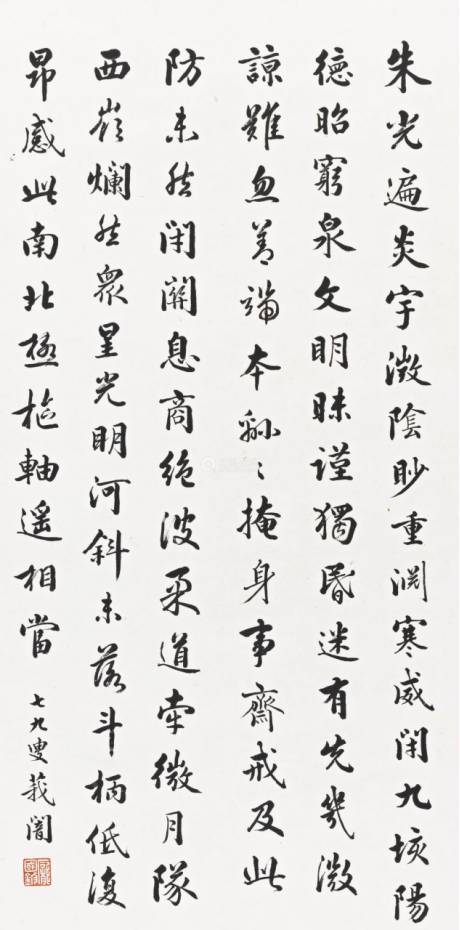 朱光遍炎宇微陰眇重渕寒威閉九垓陽
德昭窮泉文明昧謹獨昏迷有先幾微
諒難忽善端本綿〻掩身事齋戒及此
防未然閉關息商絶彼柔道牽微月隊
西嶺爛然衆星光明河斜未落斗柄低復
昂感此南北極樞軸遥相當
七九叟莪闇